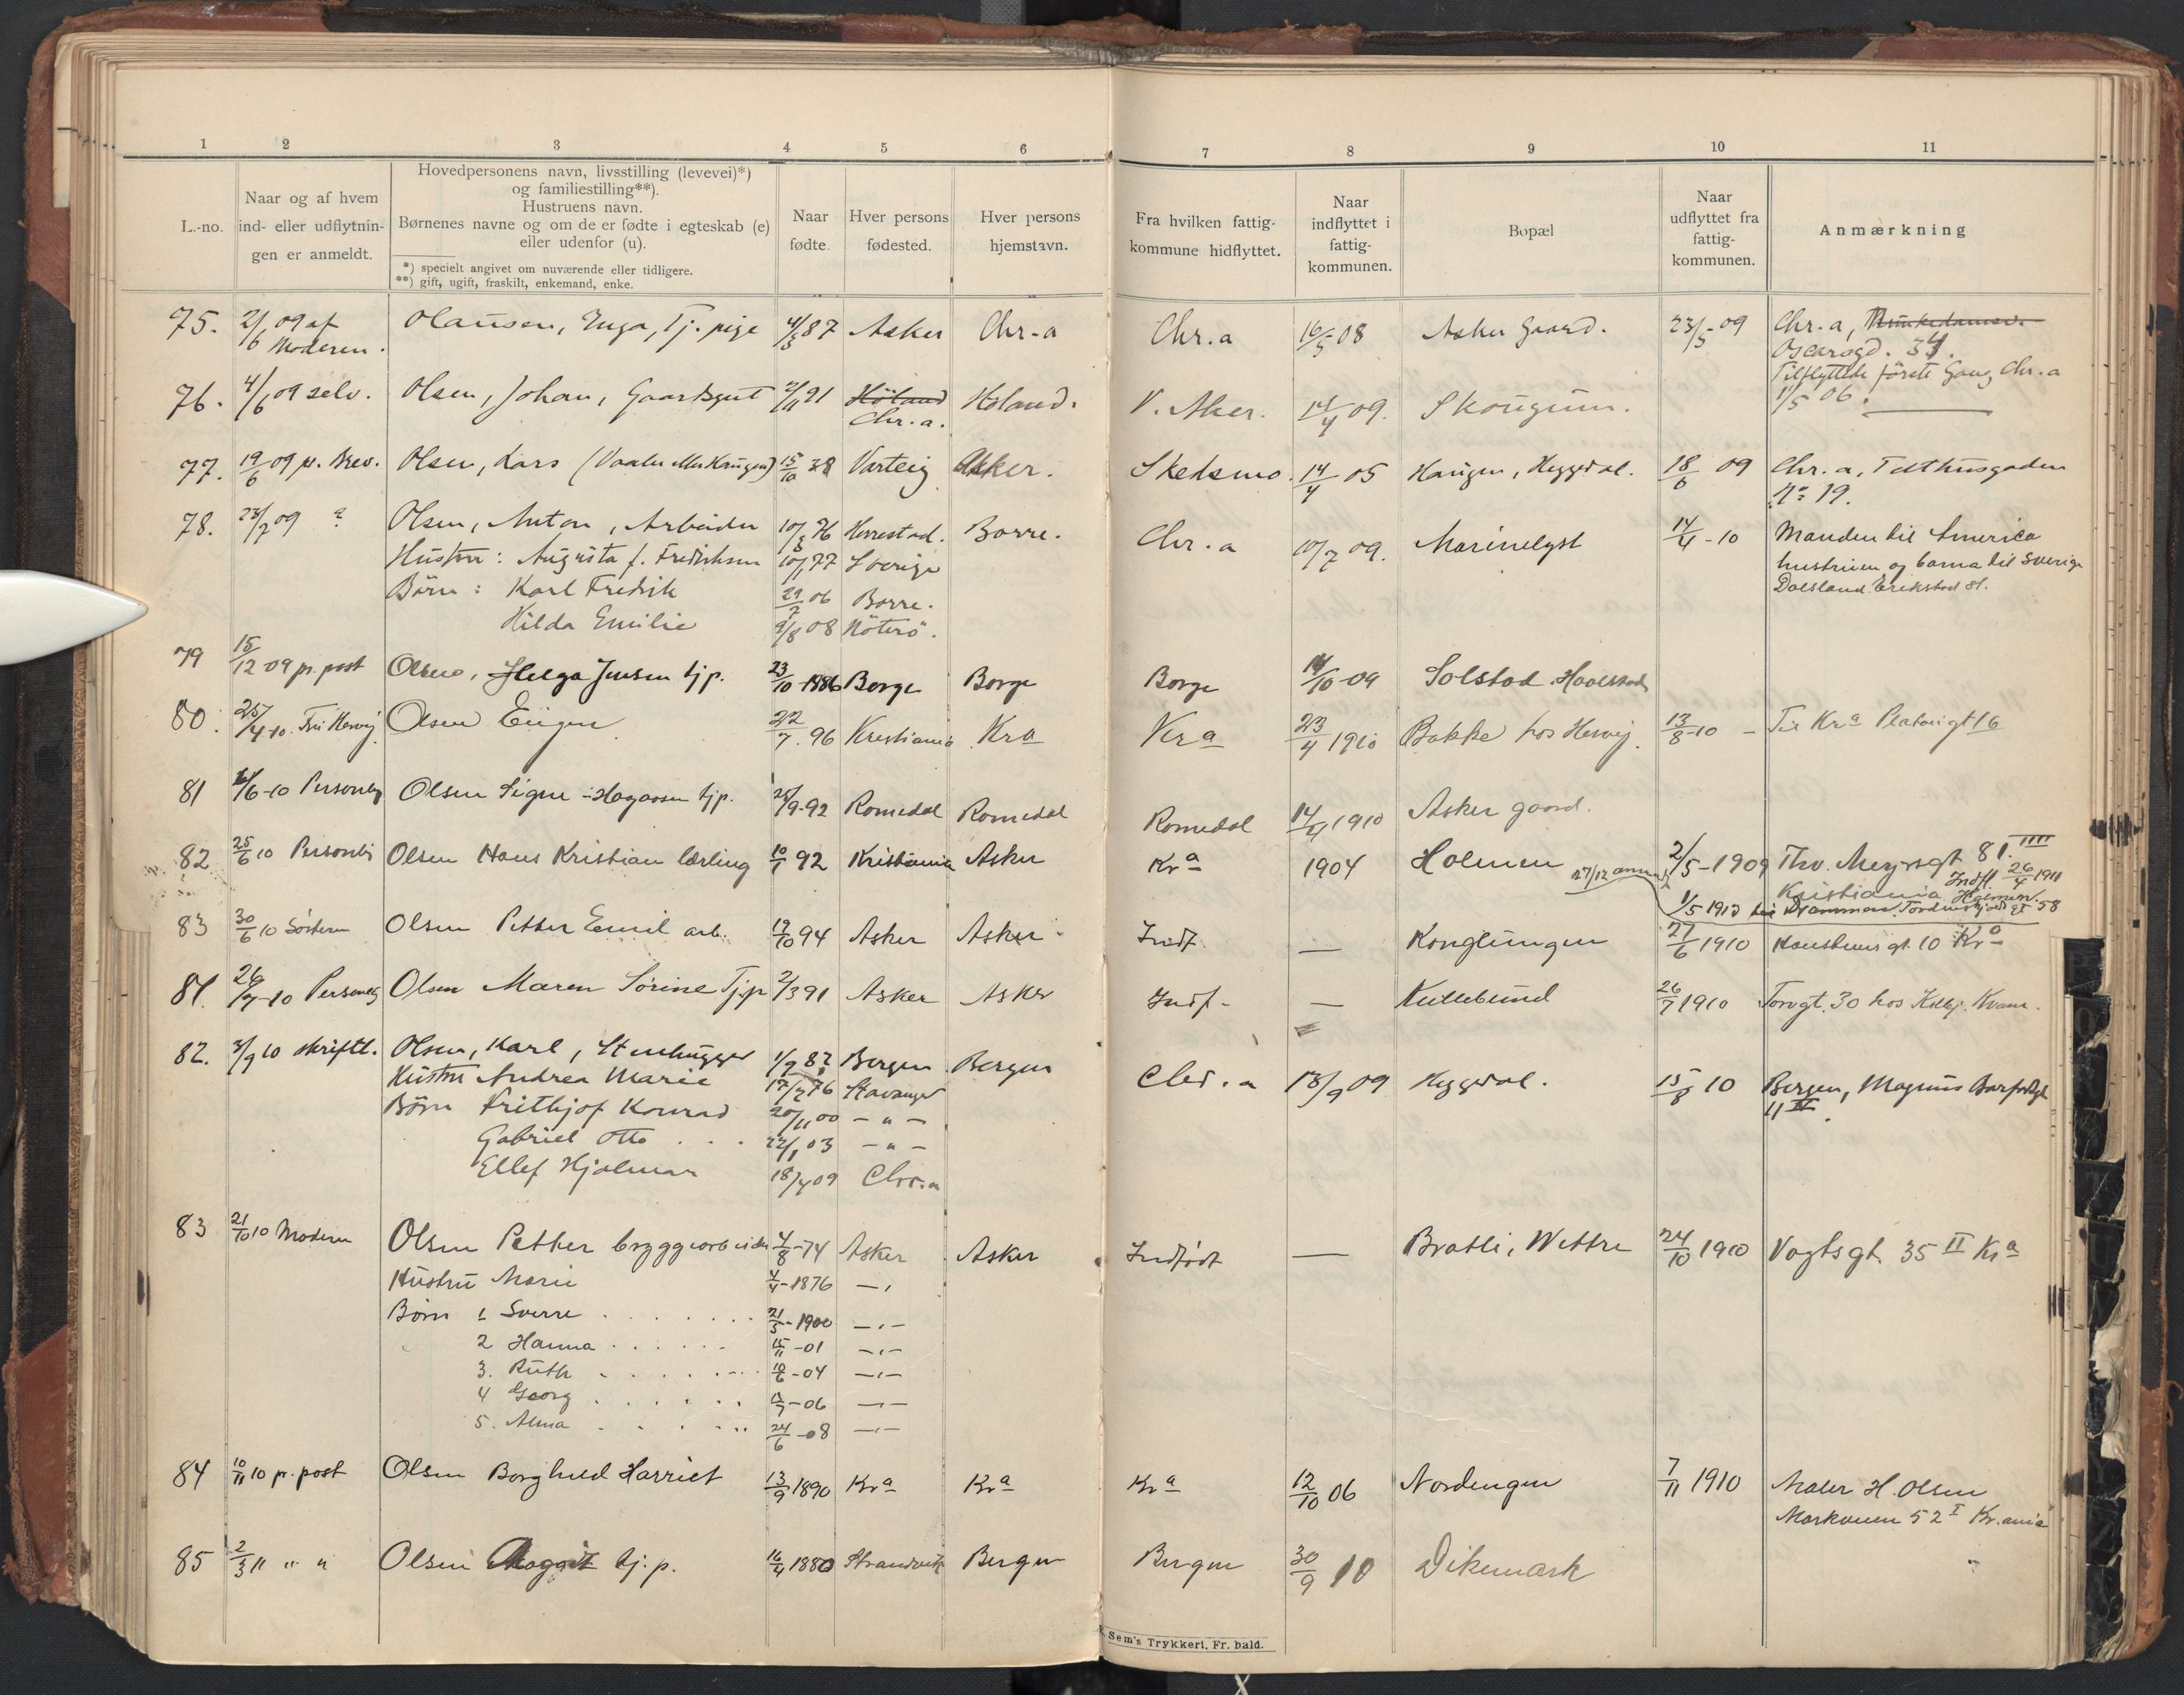 1 2 3 4 5 6 7 8 9 10 11
L.-no.
Naar og af hvem
ind- eller udflytnin-
gen er anmeldt.
Hovedpersonens navn, livsstilling (levevei)*)
og familiestilling**).
Hustruens navn.
Børnenes navne og om de er fødte i egteskab (e)
eller udenfor (u).
*) specielt angivet om nuværende eller tidligere.
**) gift, ugift, fraskilt, enkemand, enke.
Naar
fødte.
Hver persons
fødested.
Hver persons
hjemstavn.
Fra hvilken fattig-
kommune hidflyttet.
Naar
indflyttet i
fattig-
kommunen.
Bopæl
Naar
udflyttet fra
fattig-
kommunen.
Anmærkning
75. 2/6 09 af Olausen, Inga, Tj. pige 4/3 87 Asker Chr-a Chr.a 16/5 08 Asker Gaard. 23/5-09 Chr.a, Munkedamsv.
Moderen. Oscarsgd. 34.
Tilflyttede förste Gang Chr.a
1/5 06.
76. 4/6 09 selv. Olsen, Johan, Gaardsgut 2/11 91 Höland Höland. V. Aker. 14/4 09. Skougum.
Chr.a.
77. 19/6 09 pr. Brev. Olsen, Lars 15/10 38 Varteig Asker. Skedsmo. 14/4 05 Haugen, Heggedal. 18/6 09 Chr.a, Telthusgaden
No 19.
78. 23/7 09 Olsen, Anton, Arbeider 10/3 76 Herrestad. Borre. Chr.a 10/7 09. Marinelyst 14/4-10 Manden til America
Hustru: Augusta f. Fredriksen 10/1 77 Sverige hustruen og barna til Sverige
Börn: Karl Fredrik 29/7 06 Borre. Dalsland Erikstad st.
Hilda Emilie 9/8 08 Nöterö.
79 15/12 09 pr. post Olsen, Helga Jensen tjp. 23/10-1886 Borge Borge Borge 14/10-09 Solstad Haalstad
80. 25/4-10. Fru Hervig Olsen Eugen 22/7. 96 Kristiania Kra Kra 23/4 1910 Bakke hos Hervig. 13/8-10 - Til Kra Platougt 16
81 2/6-10 Personlig Olsen Signe Hagaasen tjp. 25/9-92 Romedal Romedal Romedal 14/4 1910 Asker gaard.
82 25/6 10 Personlig Olsen Hans Kristian lærling 10/1 92 Kristiania Asker Kra 1904 Holmen 2/5-1909 Thv. Meyersgt 81. IIII
27/12 Kristiania Indfl. 26/4 1911 Holmen.
1/5 1913 til Drammen Tordenskjolds gt 58
83 30/6 10 Sösteren Olsen Petter Emil arb. 19/10 94 Asker Asker Indf. — Konglungen 27/6 1910 gt. 10 Kra
81. 26/7-10 Personlig Olsen Maren Sörine Tj.p 2/3 91 Asker Asker Indf. — Kullebund 26/7 1910 Torvgt. 30 hos Kvam.
82. 3/9 10 skriftl. Olsen, Karl, Stenhugger 1/9 82 Bergen Bergen Chr.a 13/9 09 Heggedal. 15/8 10 Bergen, Magnus Barfodsgt
Hustru Andrea Marie 17/2 76 Stavanger 11 II.
Börn Frithjof Konrad 20/11 00 - " -
Gabriel Otto 22/1 03 - " -
Ellef Hjalmar 18/4 09 Chr.a
83 21/10 10 Moderen Olsen Petter bryggearbeider 4/8-74 Asker Asker Indfödt — Bratli, Wettre 24/10 1910 Vogtsgt. 35 II Kra
Hustru Marie 4/4-1876 -"
Börn 1 Sverre 21/5-1900 -"-
2 Hanna 15/11-01 -"-
3. Ruth 10/6-04 -"-
4 Georg 12/7-06 -"-
5. Alma 24/6-08 -"-
84 10/11 10 pr. post Olsen Borghild Harriet 13/9 1890 Kra Kra Kra 12/10 06 Nordengen 7/11 1910 Maler H. Olsen
Markveien 52 I Kr.ania
85 2/3 11 " " Olsen Maggit tj.p. 16/4 1880 Strandvik Bergen Bergen 30/9 10 Dikemark
Sem's Trykkeri, Fr. hald.